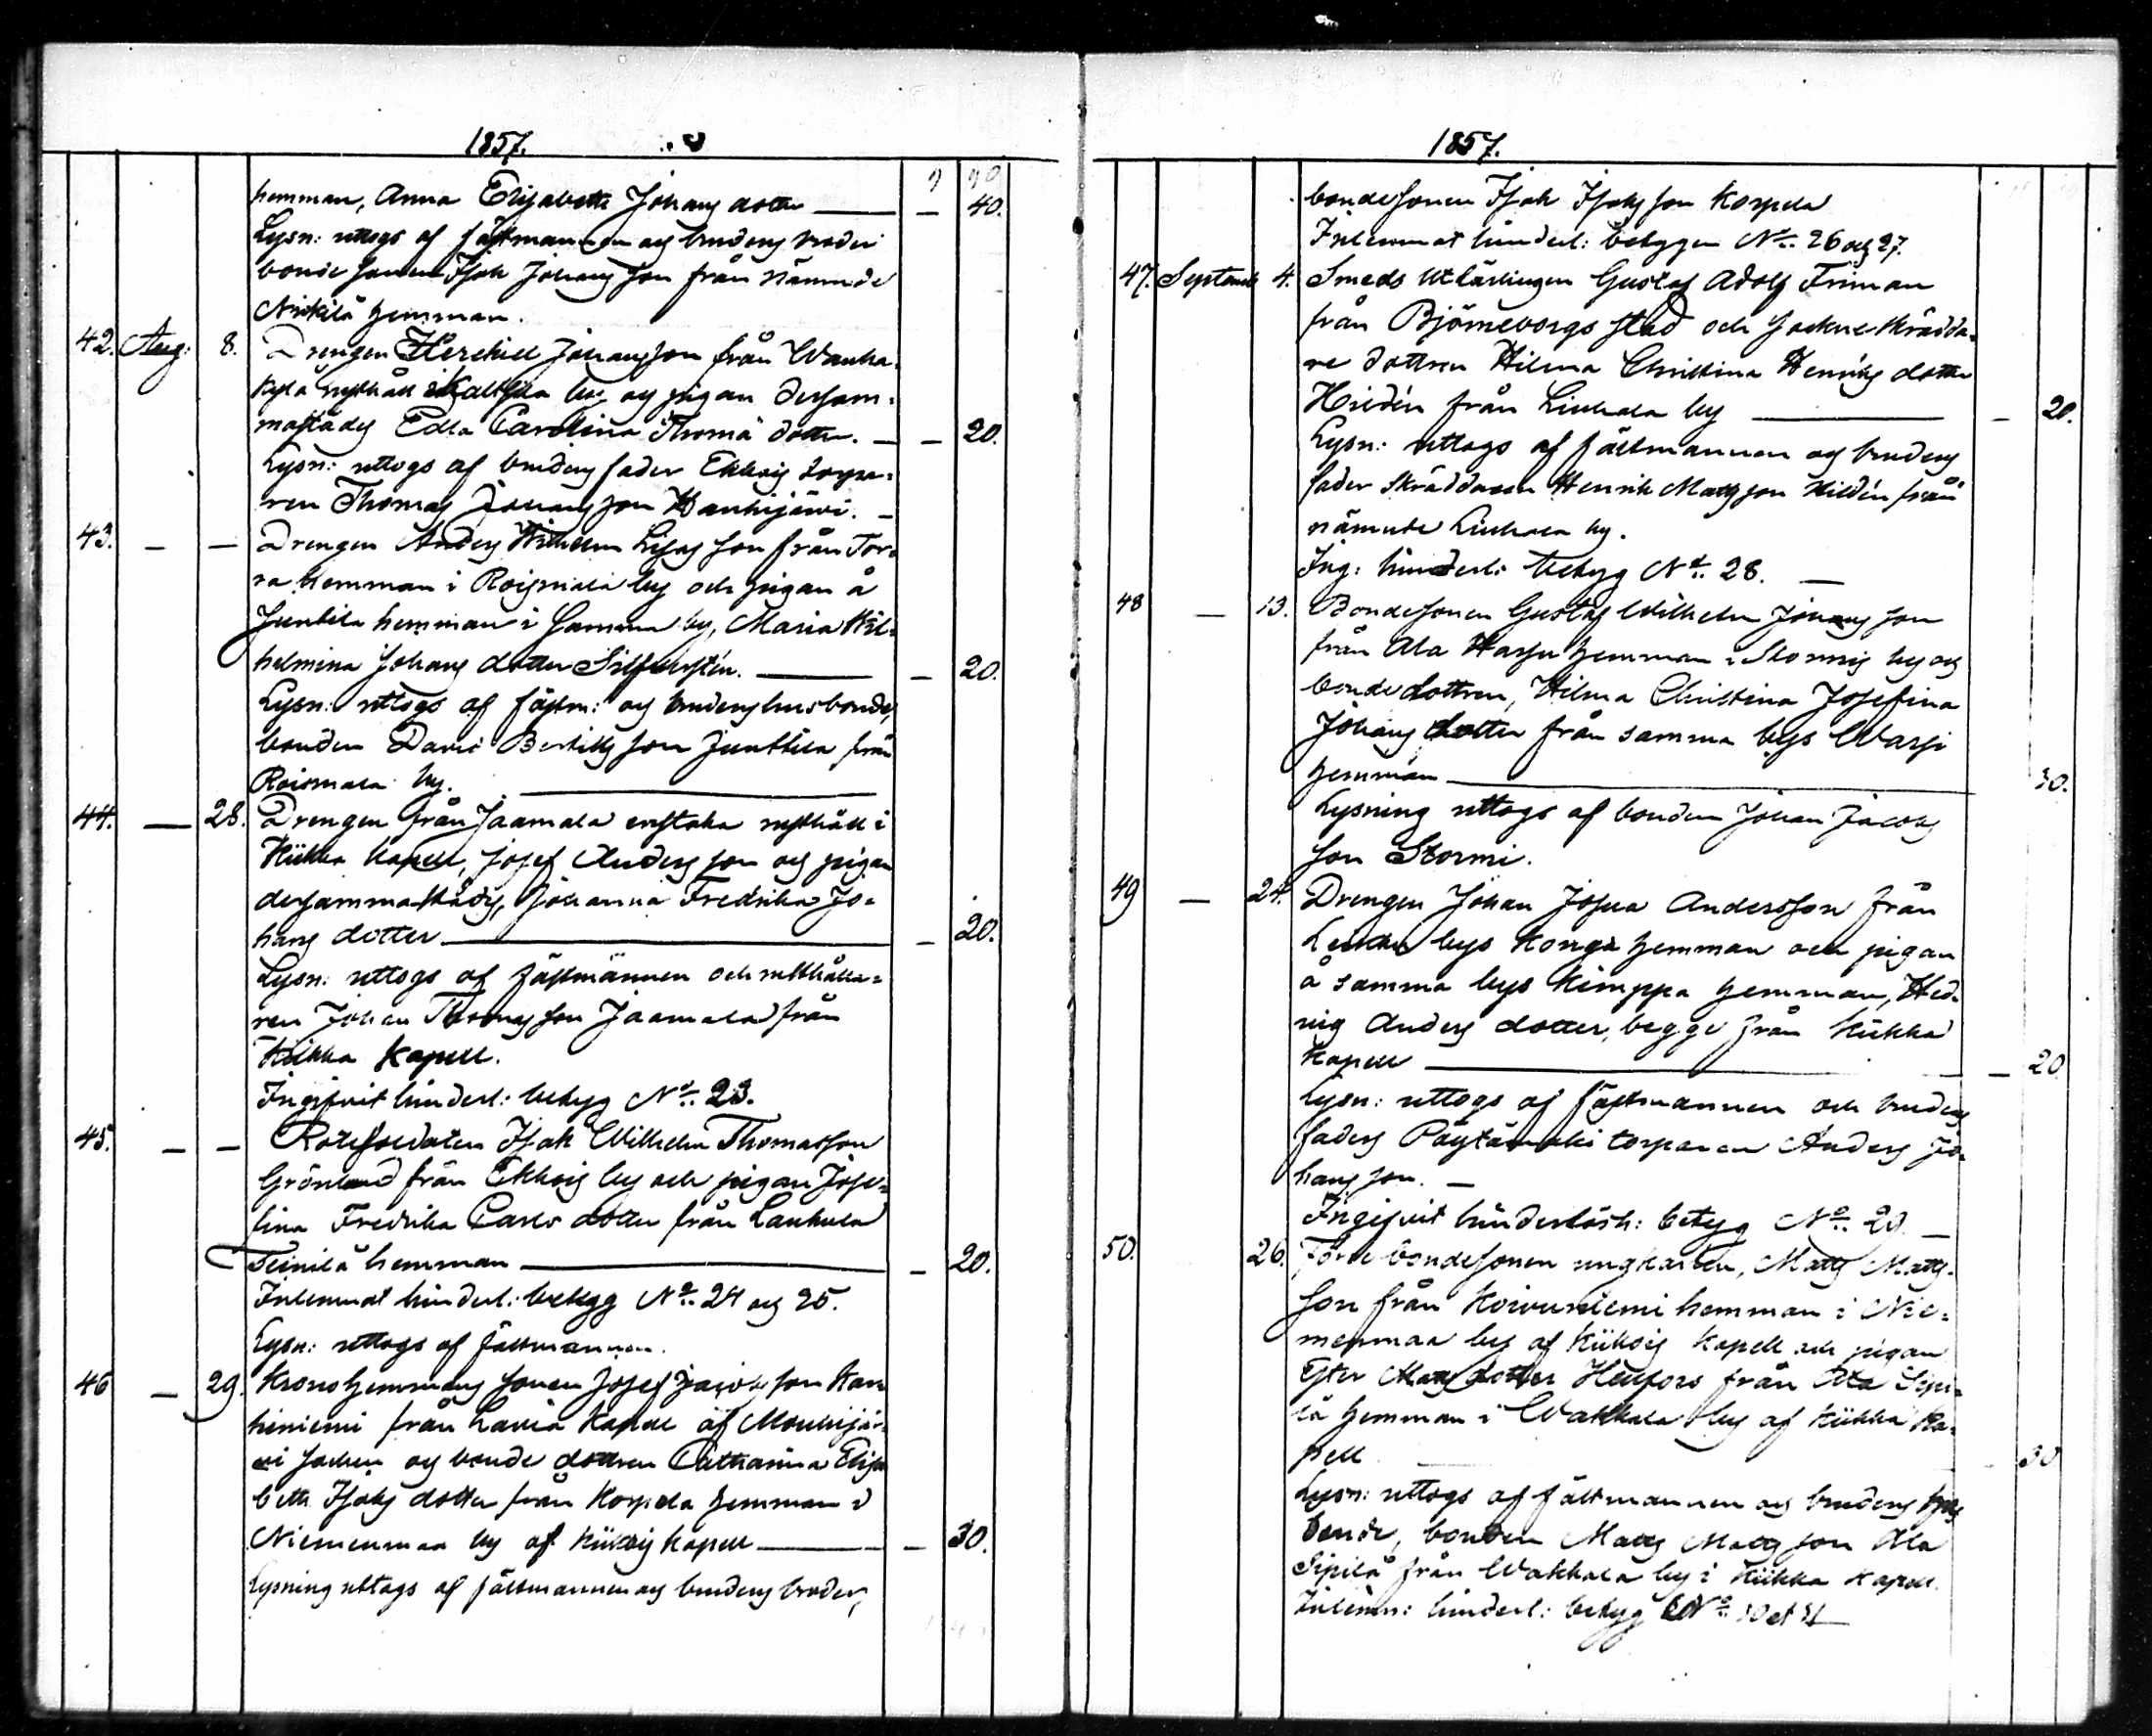 1857.
hemman, Anna Elisabeth Johans dotter — 40.
Lysn: uttogs af fästmannen och brudens broder
bonde sonen Isak Johans son från nämnde
hemman.
42. Aug: 8. Drengen Hezekiel Johansson från Wanha-
kylä rusthåll i by och pigan dersam-
mastädes Edla Carolina Thomä dotter. — — 20.
Lysn: uttogs af brudens fader Ekkois torpa-
ren Thomas Johans son Hanhijärvi. —
43. — — Drengen Anders Wilhelm son från Tor-
ra hemman i Roismala by och pigan å
Junttila hemman i samma by, Maria Wil-
helmina Johans dotter Silfverstén. — — 20.
Lysn: uttogs af fästm: och brudens husbonde,
bonden David Bertils son Junttila från
Roismala by. —
44. — 28. Drengen från Jaamala enstaka rusthåll i
Kiikka kapell, Josef Anders son och pigan
dersammastädes, Johanna Fredrika Jo-
hans dotter — — 20.
Lysn: uttogs af fästmannen och rusthålla-
ren Johan Thomas son Jaamala från
Kiikka kapell.
Ingifvit hinderl: betyg No. 23.
45. — — Rotesoldaten Isak Wilhelm Thomasson
Grönlund från Ekkois by och pigan Jose-
fina Fredrika Carls dotter från Laukula
hemman — — 20.
Inlemnat hinderl: betyg No. 24 och 25.
Lysn: uttogs af fästmannen.
46 — 29. Kronohemmans sonen Josef Jacobs son Kar-
hiniemi från Lavia kapell af Mouhijär-
vi socken och bonde dottren Catharina Elisa
beth Isaks dotter från Korpela hemman i
Niemenmaa by af Kiikois kapell — — 30.
Lysning uttogs af fästmannen och brudens broder,
1857.
bondesonen Isak Isaks son Korpela
Inlemnat hinderl: betygen No. 26 och 27.
47. Septemb 4. Smeds Utlärlingen Gustaf Adolf Friman
från Björneborgs stad och sockne skrädda-
re dottren Hilma Christina Henriks dotter
Hildén från Liuhala by — — 20.
Lysn: uttogs af fästmannen och brudens
fader skräddaren Henrik Mattsson Hildén från
nämnde Liuhala by.
Ing: hinderl: betyg No. 28. —
48 — 13. Bondesonen Gustaf Wilhelm Johans son
från Ala Warju hemman i Stormis by och
bonde dottren, Hilma Christina Josefina
Johans dotter från samma bys
hemman — 30.
Lysning uttogs af bonden Johan Jacobs
son Stormi.
49 — 24. Drengen Johan Josua Andersson från
bys hemman och pigan
å samma bys Kimppa hemman, Hed-
vig Anders dotter, begge från Kiikka
kapell — — 20
Lysn: uttogs af fästmannen och brudens
faders torparen Anders Jo-
hans son. —
Ingifvit hinderlösh: betyg No. 29. —
50. 26. Förre bondesonen ungkarlen, Matts Matts-
son från Koivuniemi hemman i Nie-
menmaa by af Kiikois kapell och pigan
Ester Matts dotter Helfors från Ala Sipi-
lä hemman i Wakkala by af Kiikka ka-
pell — 30
Lysn: uttogs af fästmannen och brudens hus
bonde, bonden Matts Matts son Ala
Sipilä från Wakkala by i Kiikka kapell.
Inlemn: hinderl: betyg No. 30 et 31